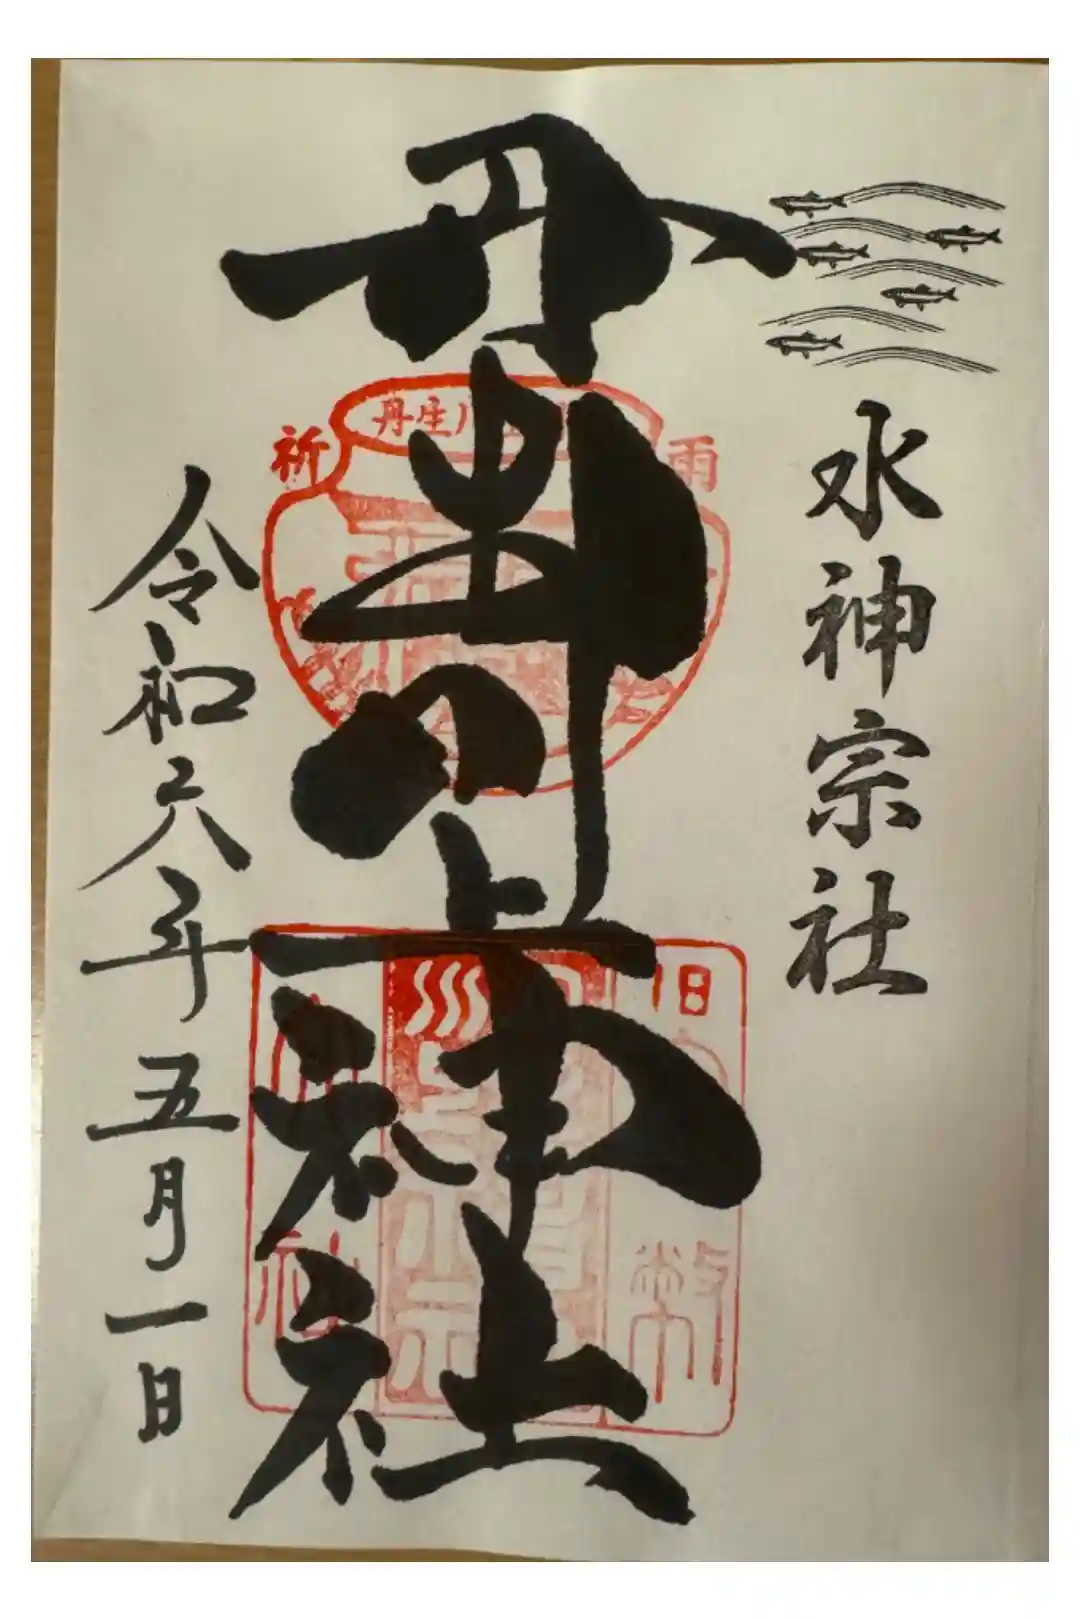 水神宗社
丹生川上神社
令和六年五月一日
祈
雨
丹生川
旧
幣